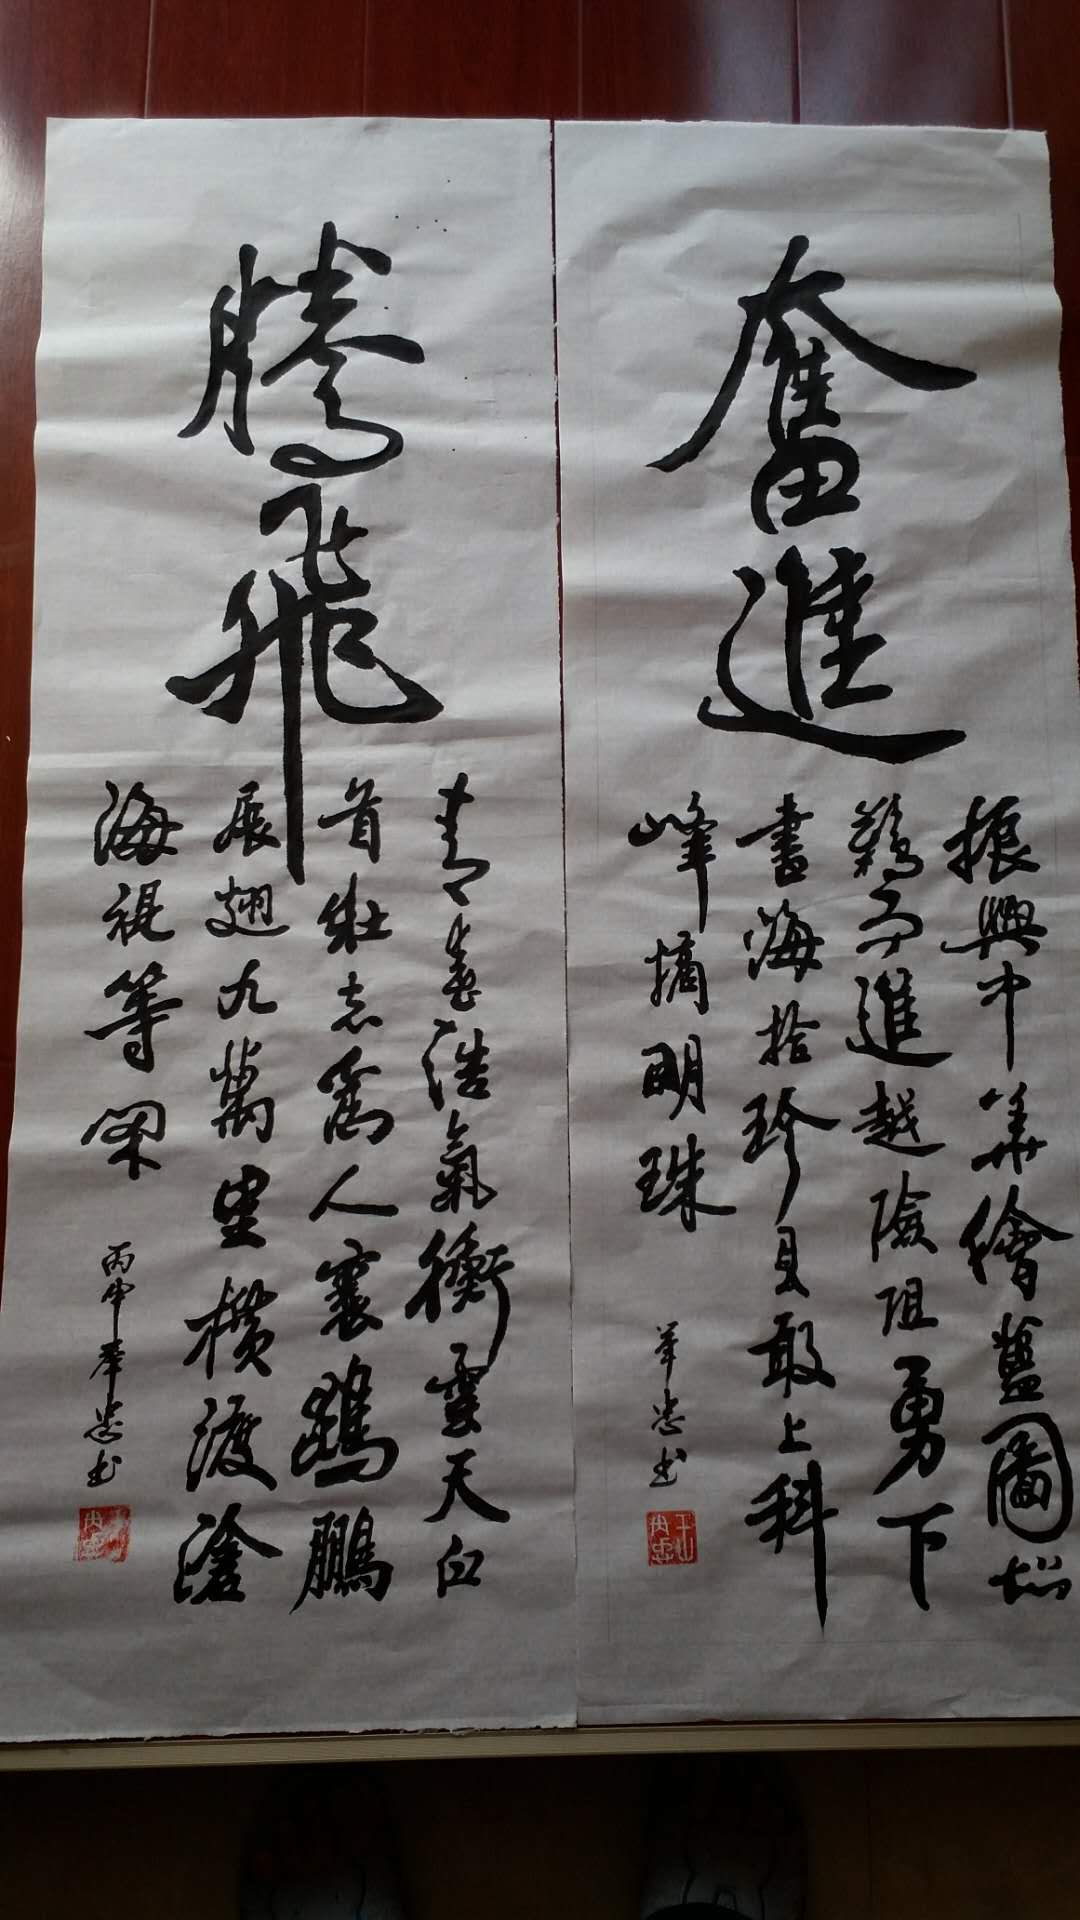 奮進
振興中華繪藍圖
而進越險阻勇下
書海拾珍具敢上科
峰摘明珠
忠书
騰飛
青春浩氣衝雲天白
首壯志為人寰鵾鵬
展翅九萬里橫渡滄
海視等閑
丙申 忠书